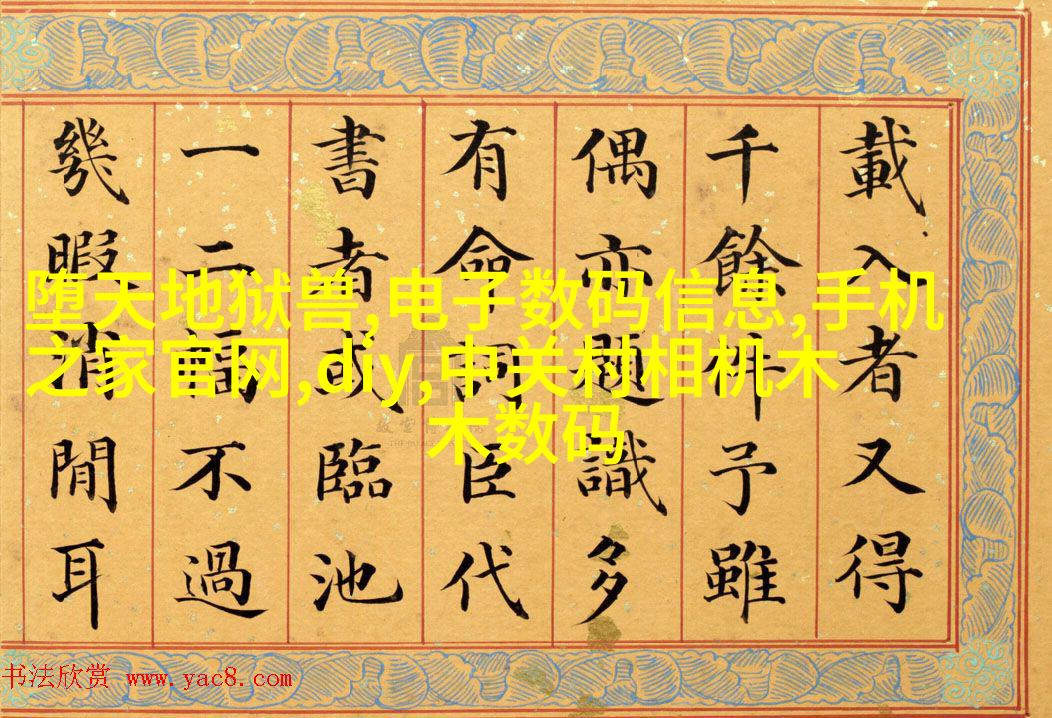 載入者又得
千餘件予雖
偶亦題識多
有命詞臣代
書者或臨池
一二幅不過
幾暇消閒耳
堕天地狱兽,电子数码信息,手机
之家官网,diy,中关村相机木
木数码
书法欣赏 www.yac8.com